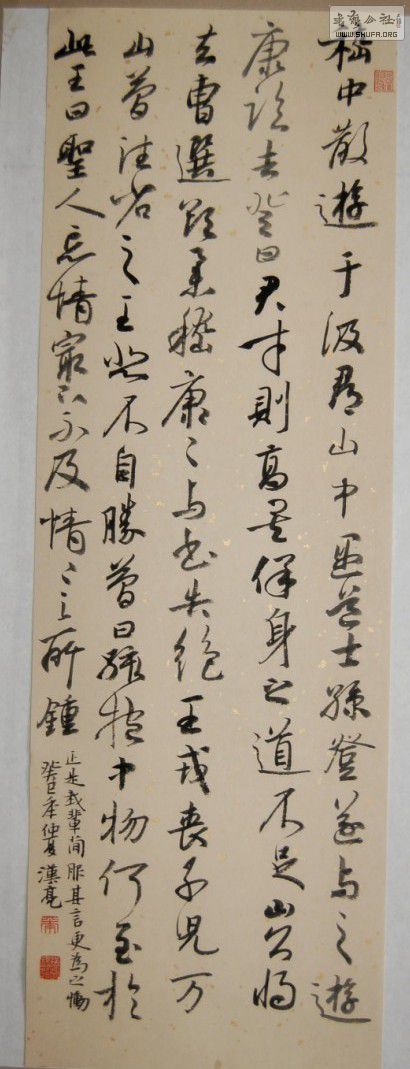 嵇中散遊于汲郡山中遇道士孫登遂与之遊
康臨去登曰君才則高矣保身之道不足山公將
去曹選欲舉嵇康〻与書告絕王戎喪子兒万
山簡往省之王悲不自勝簡曰孩抱中物何至於
此王曰聖人忘情寂下不及情〻之所鍾
正是我輩簡服其言更為之慟
癸巳年仲夏漢亮
書法公社
WWW.SHUFA.ORG